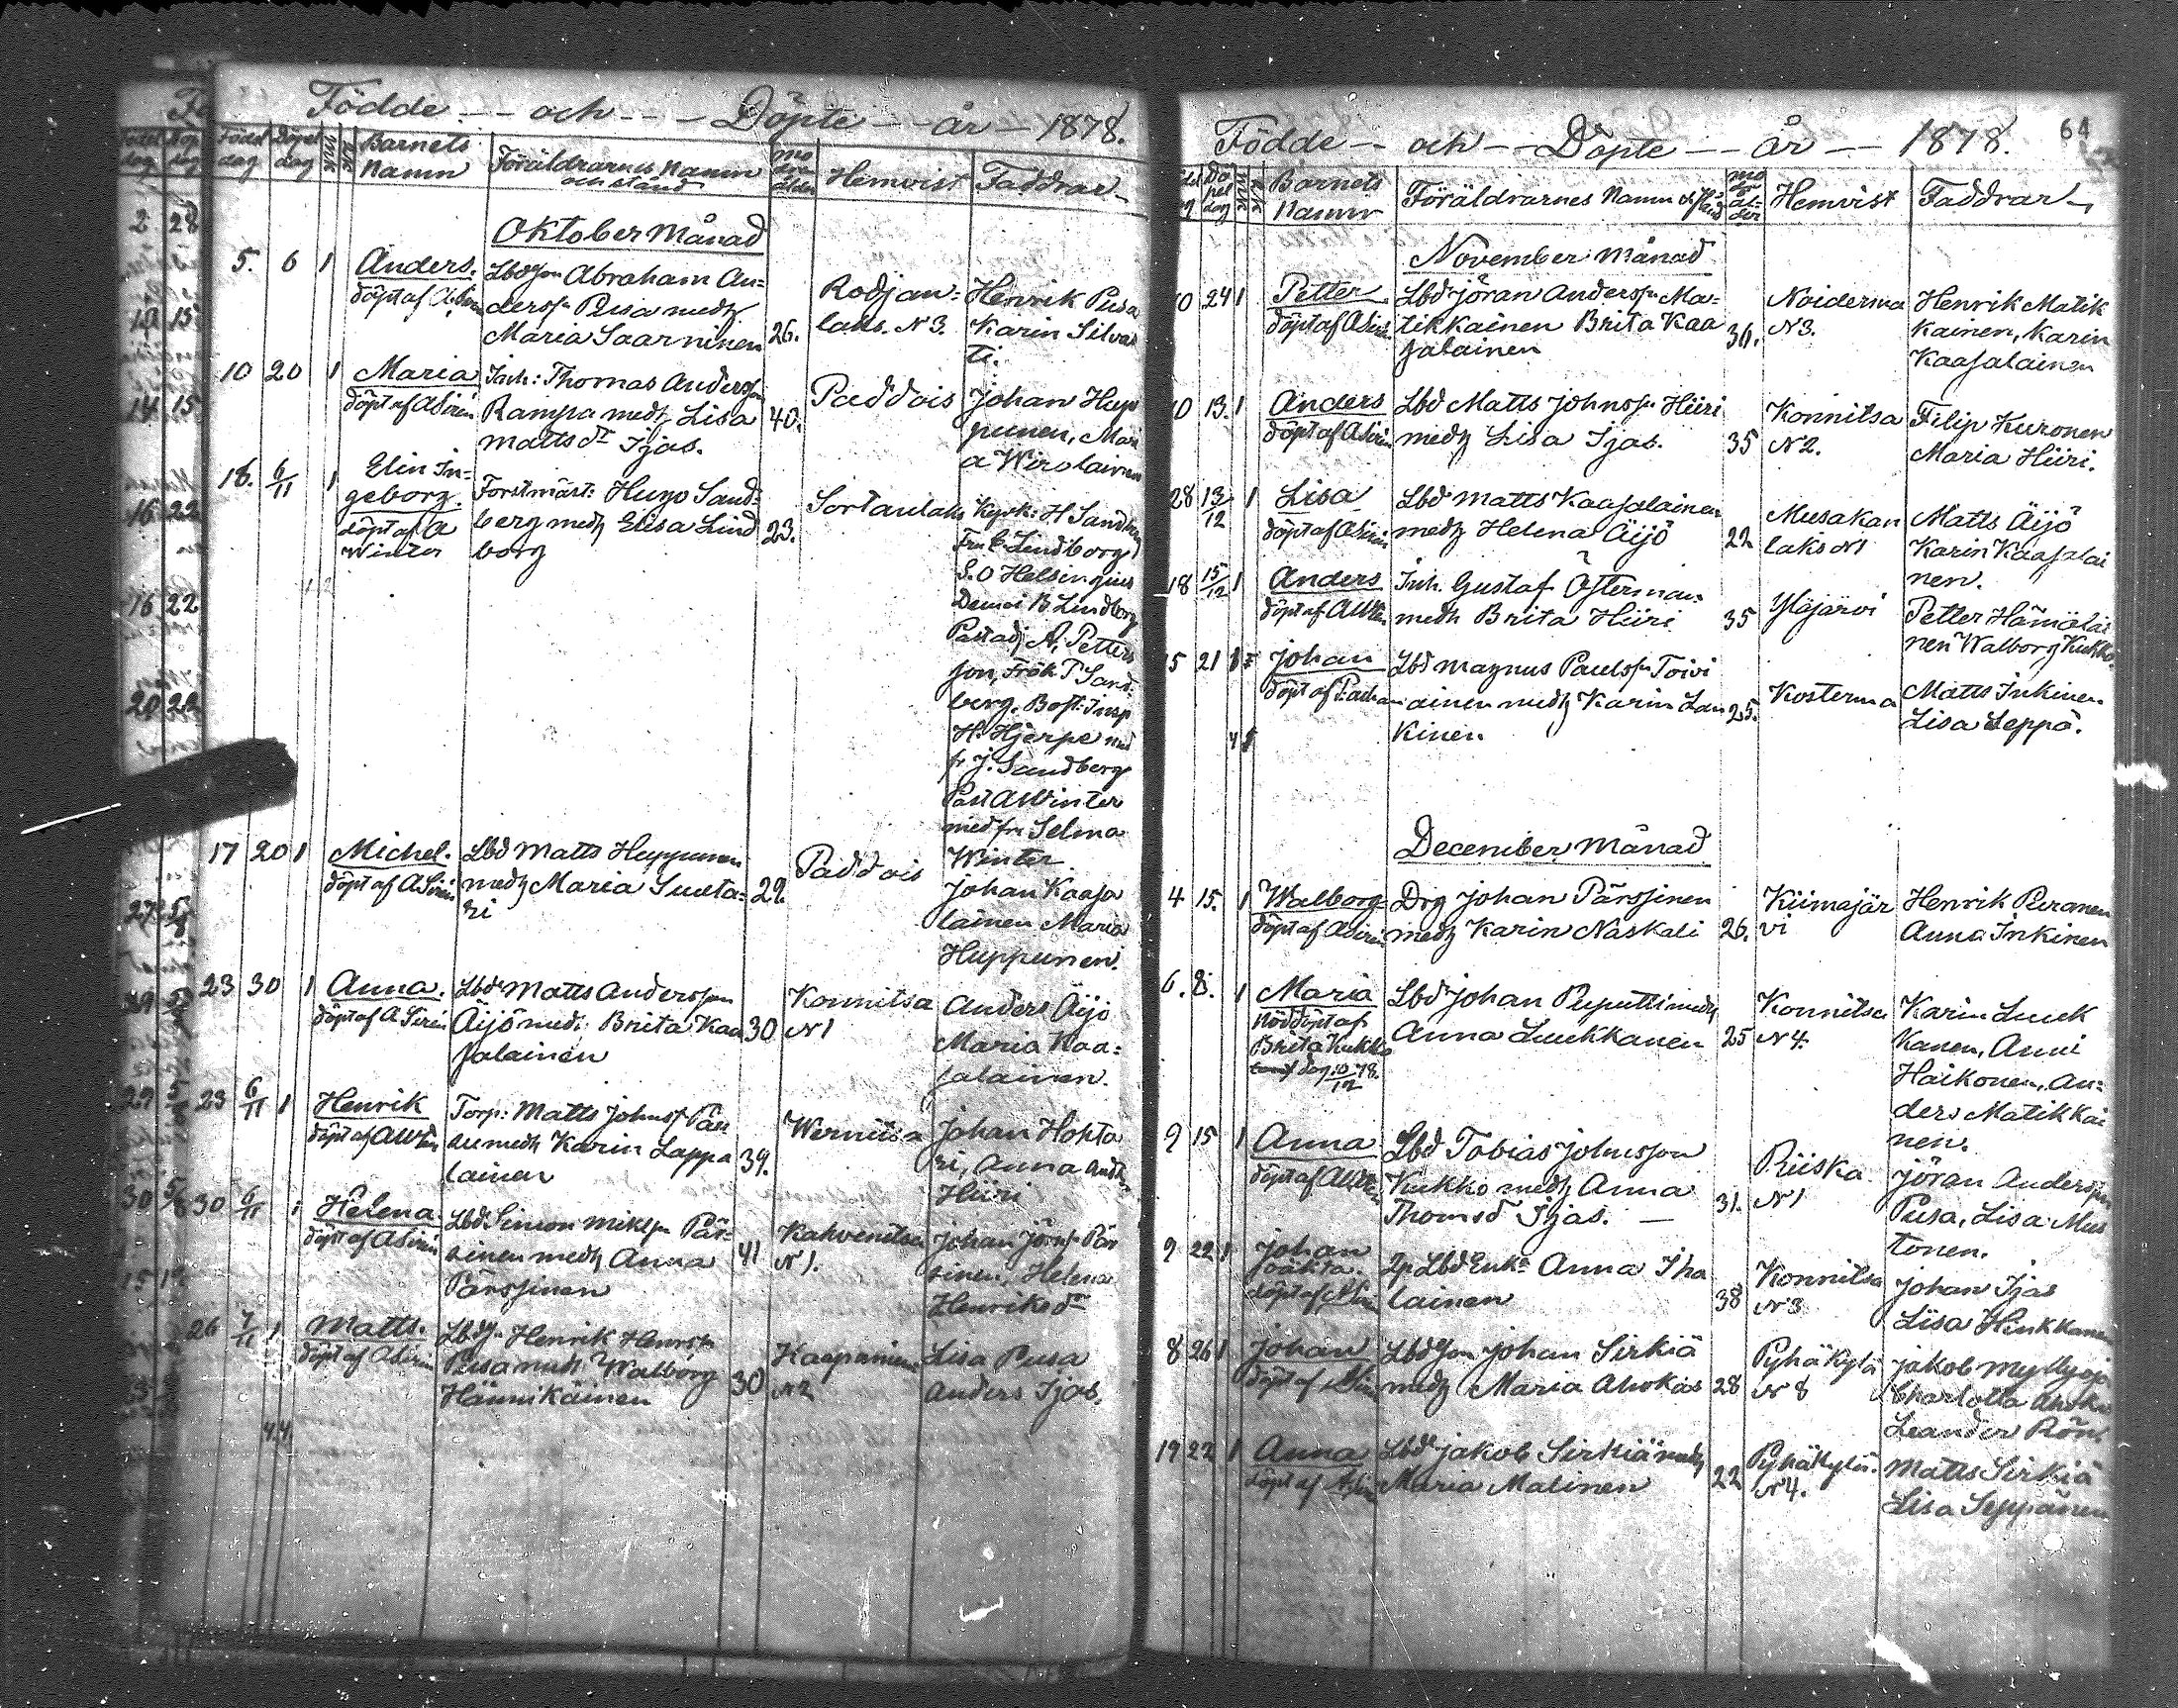 Födde - och - Döpte - år - 1878.
Född dag
Döpelsedag
Barnets Namn
Föräldrarnes Namn och stånd
Hemvist
Faddrar
Oktober Månad
5. 6 1 Anders.
döpt af
Abraham An=
derss Pusa medh
Maria Saarninen
26.
Rodjan=
laks. N3.
Henrik Pusa
Karin Silvas
ti.
10 20 1 Maria
döpt af A Sirén
Inh: Thomas Anderss
Rampa medh Lisa
Matts dr Ijas.
40.
Paddois
Johan Hup
punen, Mari
a Wirolainen
18. 6/11 1 Elin In=
geborg.
döpt af A
Winter
Forstmäst: Hugo Sand=
berg medh Elisa Lind
borg
23.
Sortanlaks
H Sandberg
Fru E Lindborg
S. O Helsingius
B Lindborg
Past adj A. Petters
son, Frök T Sand=
berg, Insp
H. Hjerpe med
fr J. Sandberg
Past A Winter
med fru Selma
Winter
17 20 1 Michel.
döpt af A Sirén
Lbd Matts Huppunen
medh Maria Suuta=
ri
29.
Paddois
Johan Kaasa
lainen Maria
Huppunen.
23 30 1 Anna.
döpt af A Sirén
Lbd Matts Andersson
Äijö medh Brita Kaa
salainen
30
Konnitsa
N1
Anders Äijö
Maria Kaa=
salainen.
23 6/11 1 Henrik
döpt af
Torp: Matts Johnss
medh Karin Lappa
lainen
39.
Wernitsa
Johan Hokta
ri, Anna
Hiiri
30 6/11 1 Helena.
döpt af A Sirén
Lbd Simon Mikss Pär=
sinen medh Anna
Pärssinen
41
Kahvenitsa
N1.
Johan Pär
sinen, Helena
Henriks dr
26 7/11 1 Matts.
döpt af A Sirén
Henrik Henriks
Pusa medh Walborg
Hännikäinen
30
Haapaniemi
N2
Lisa Pusa
Anders Ijas.
4. 4.
64
Födde - och - Döpte - år - 1878.
Barnets Namn
Föräldrarnes Namn
Hemvist
Faddrar
November Månad
24 1 Petter
döpt af A Sirén
Lbd Jöran Anderss Ma=
tikkainen Brita Kaa
salainen
Noiderma
N3.
Henrik Matik
kainen, Karin
Kaasalainen
13. 1 Anders
döpt af A Sirén
Lbd Matts Johnss Hiiri
medh Lisa Ijas.
35
Konnitsa
N2.
Filip Kuronen
Maria Hiiri.
28 13/12 1 Lisa
döpt af A Sirén
Lbd Matts Kaasalainen
medh Helena Äijö
22
Musakan
laks N1
Matts Äijö
Karin Kaasalai
nen.
18 15/12 1 Anders
döpt af
Inh. Gustaf Österman
medh Brita Hiiri
35
Yläjärvi
Petter Hämälai
nen Walborg Kukko
21 Johan
döpt af
Lbd Magnus Paulss Toivi
ainen medh Karin Lan
kinen
25.
Kosterma
Matts Inkinen
Lisa Leppä.
December Månad
4 15. 1 Walborg
döpt af A Sirén
Drg Johan Pärssinen
medh Karin Naskali
26.
Kiimajär
vi
Henrik Puranen
Anna Inkinen
6. 8. 1 Maria
Nöddöpt af
Brita Kukko
dag 10/12 78.
Lbd Johan Peputti medh
Anna Luukkanen
25
Konnitsa
N4.
Karin Luuk
kanen, Anni
Haikonen, An=
ders Matikkai
nen.
9 15 1 Anna
döpt af
Lbd Tobias Johnsson
Kukko medh Anna
Thoms dr Ijas.
31.
Riiska
N1
Jöran Andersson
Pusa, Lisa Mus
tonen.
9 22 1 Johan
oäkta.
döpt af
Anna Iha
lainen
38
Konnitsa
N3
Johan Ijas
Lisa Hinkkanen
8 26 1 Johan
döpt af
Johan Sirkiä
medh Maria Ahokas
28
Pyhäkylä
N8
Jakob Myllyoja
Charlotta Ahoka
Leander Rön
19 22 1 Anna
döpt af
Lbd Jakob Sirkiä medh
Maria Malinen
22
Pyhäkylä.
N4.
Matts Sirkiä
Lisa Seppänen